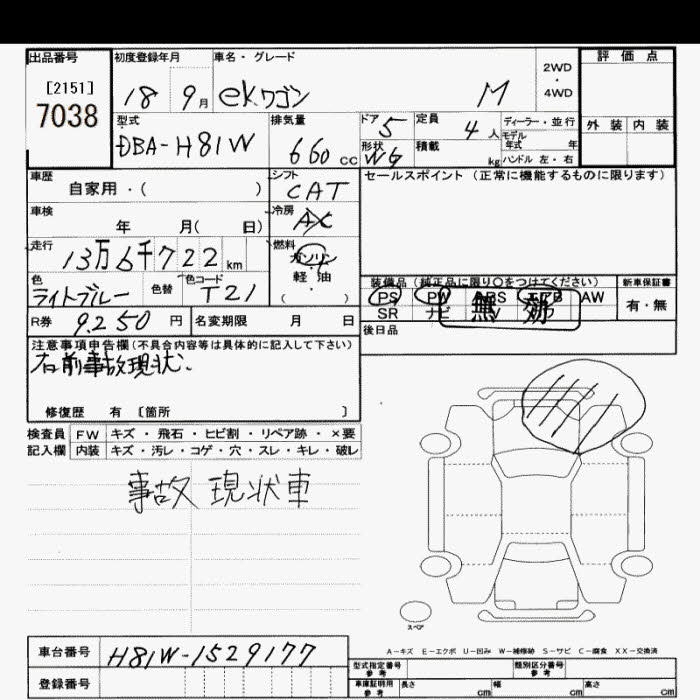 出品番号
[2151]
7038
初度登録年月
18 9月
車名・グレード
ekワゴン M
2WD
・
4WD
評価点
外装 内装
型式
DBA-H81W
排気量
660 cc
ドア 5
形状 WG
定員 4 人
積載 kg
ディーラー・並行
モデル
年式 年
ハンドル 左・右
車歴
自家用・( )
シフト
CAT
車検
年 月( 日)
冷房
AC
走行
13万6千722 km
燃料
ガソリン
軽・油
( )
色
ライトブルー
色替
色コード
T21
R券 9.250 円
名変期限 月 日
セールスポイント (正常に機能するものに限ります)
装備品 (純正品に限り○をつけてください)
PS PW ABS エアB AW
SR ナビ TV
無効
新車保証書
有・無
後日品
注意事項申告欄(不具合内容等は具体的に記入して下さい)
右前事故現状.
修復歴 有 〔箇所 〕
検査員 FW キズ・飛石・ヒビ割・リペア跡・×要
記入欄 内装 キズ・汚レ・コゲ・穴・スレ・キレ・破レ
事故現状車
スペア
A-キズ E-エクボ U-凹み W-補修跡 S-サビ C-腐食 XX-交換済
車台番号 H81W-1529177
登録番号
型式指定番号
参考
類別区分番号
参考
車庫証明用
参考
長さ cm 幅 cm 高さ cm